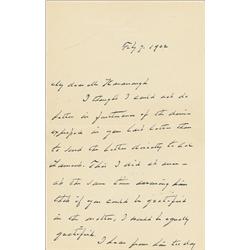 Feby 7. 1902
My dear Mr Kavanaugh
I thought I could not do
better in furtherance of the desire
expressed in your last letter than
to send the letter directly to Gov
Francis. This I did at once –
at the same time assuring him
that if you could be gratified
in the matter, I would be equally
gratified.
I hear from him to day